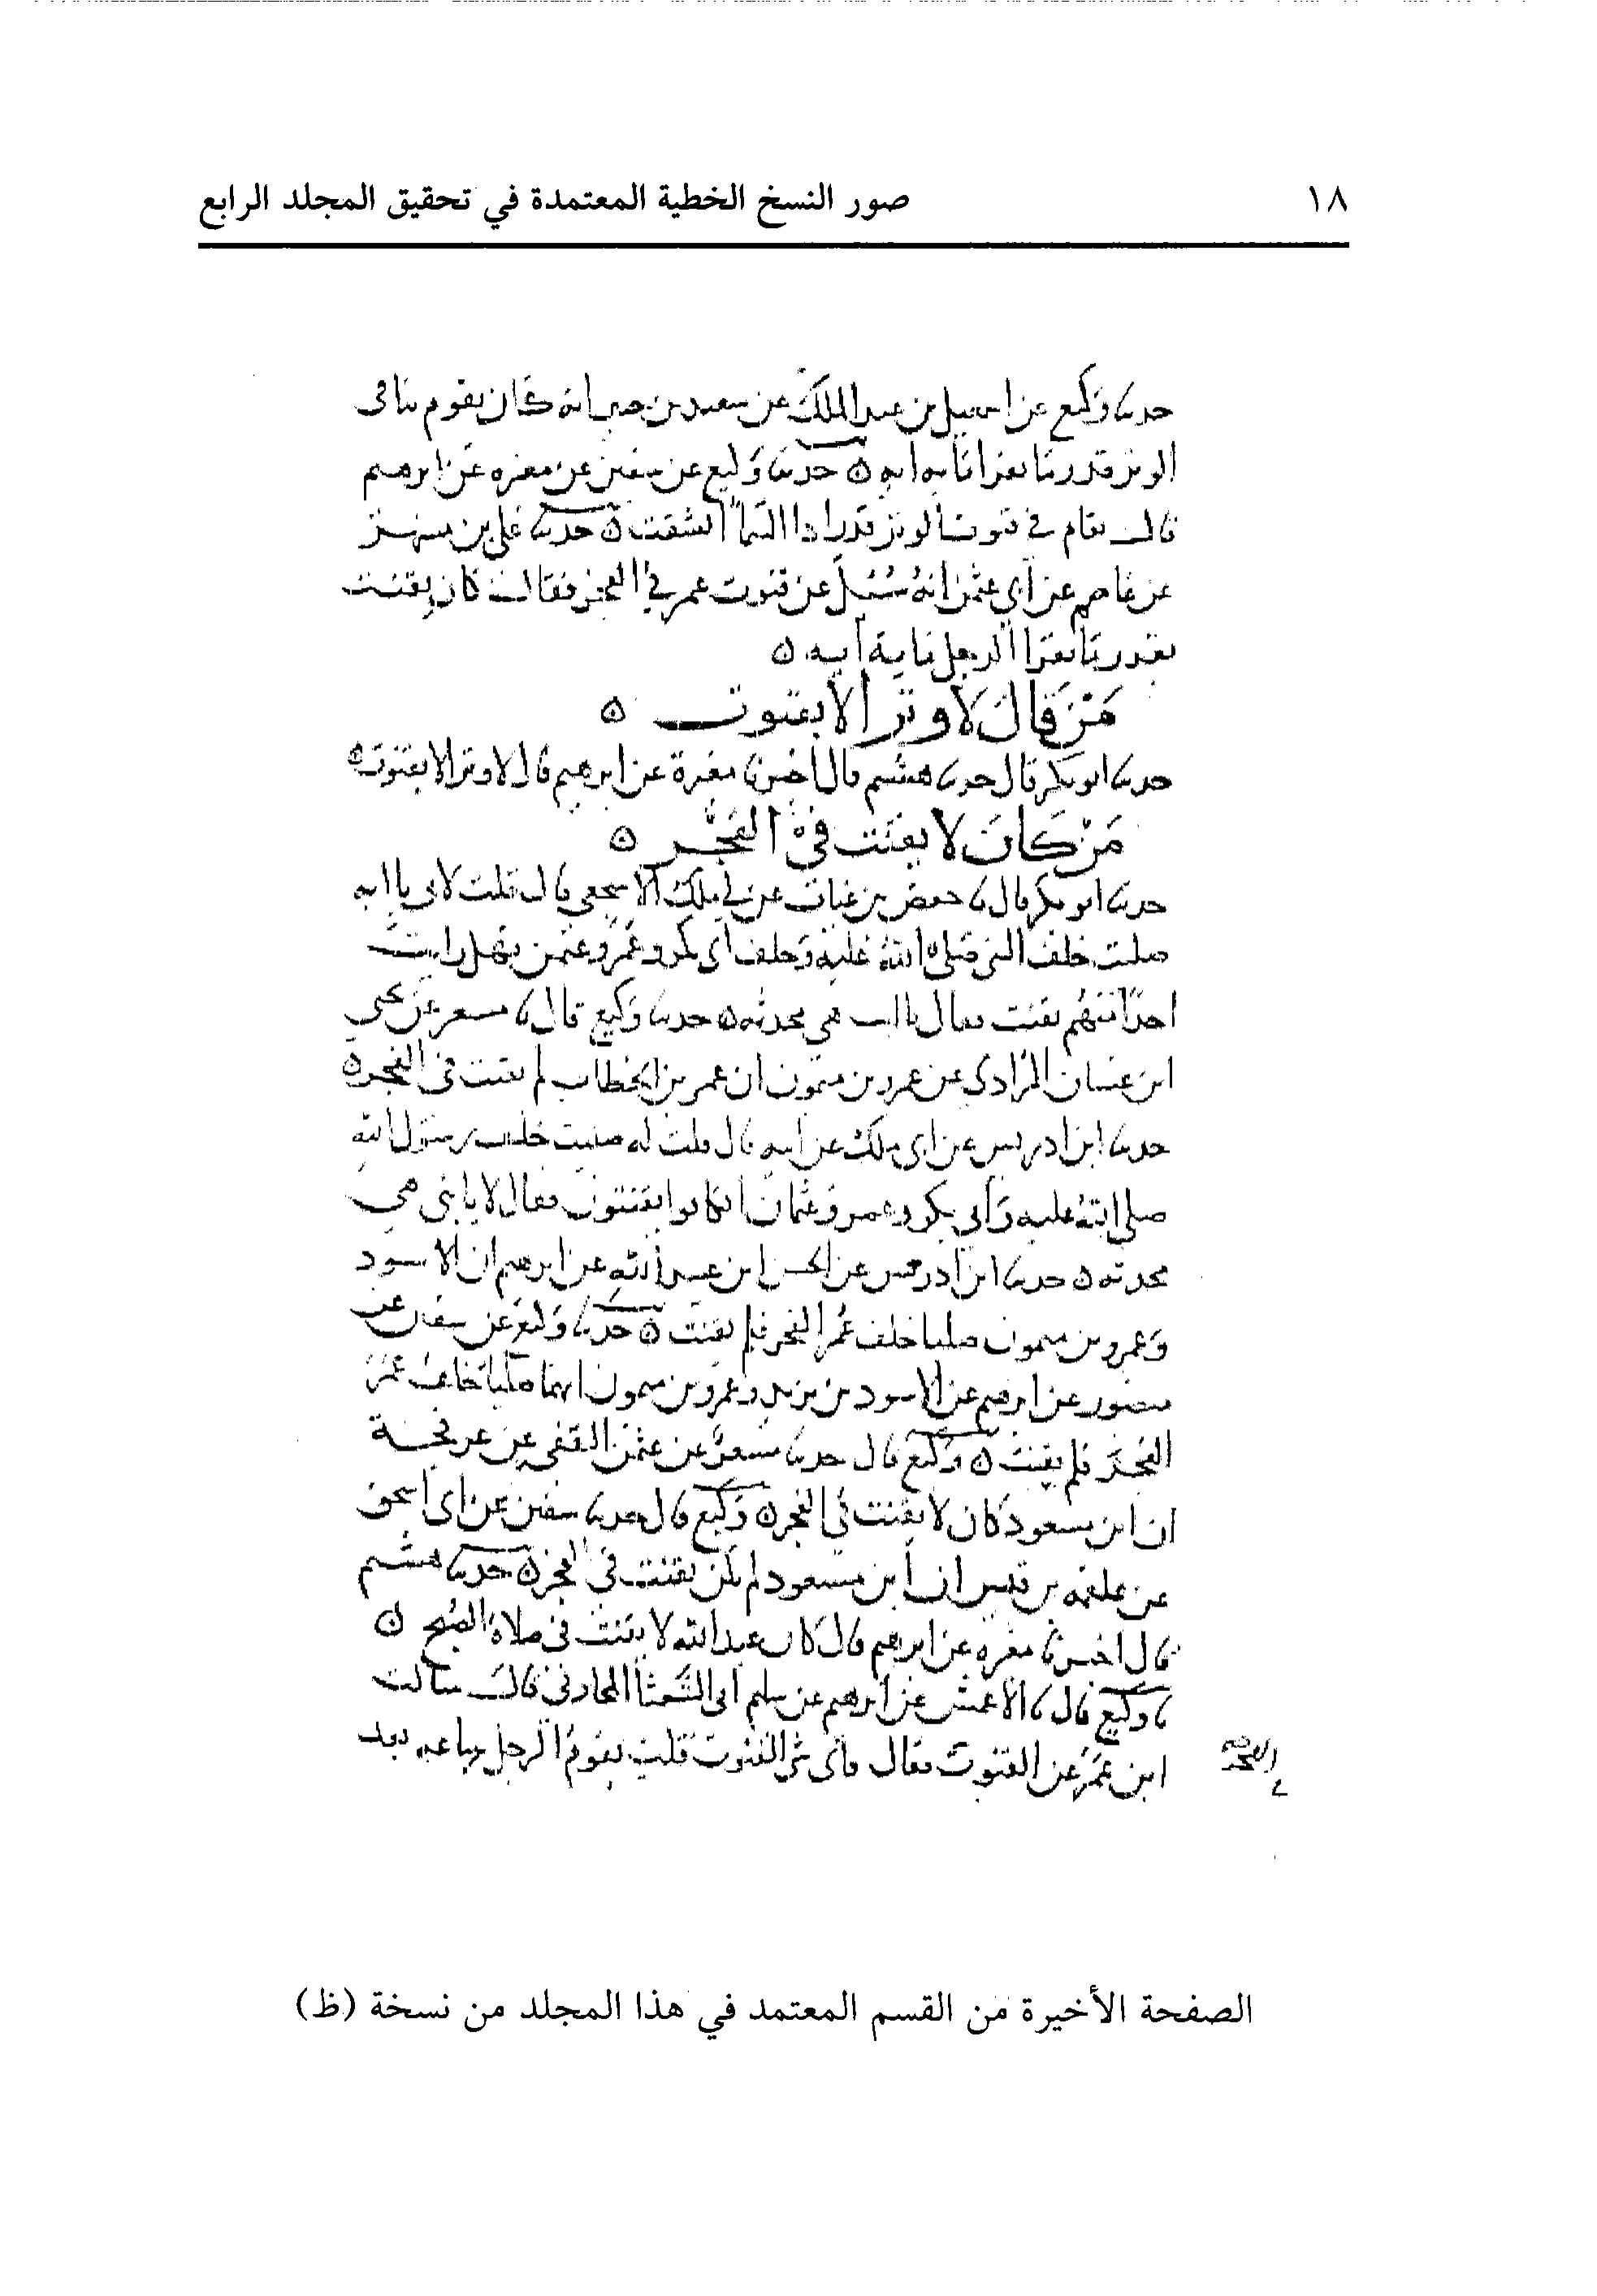 ١٨
صور النسخ الخطية المعتمدة في تحقيق المجلد الرابع
حدثنا وكيع عن اسمعيل بن عبد الملك عن سعيد بن جبير انه كان يقوم في
الوتر قدر ما يقرا مائة ايه ٥ حدثنا وكيع عن سفين عن مغيره عن ابرهيم
قال يقام في قنوت الوتر قدر اذا السماء انشقت ٥ حدثنا علي بن مسهر
عن عاصم عن ابي عثمن انه سُئِلَ عن قنوت عمر في الفجر فقال كان يقنت
بقدر ما يقرا الرجل مايه آيه ٥
مَنْ قالَ لَا وتر الا بقنوت ٥
حدثنا ابو بكر قال حدثنا هشيم قال اخبرنا مغيرة عن ابرهيم قال لا وتر الا بقنوت ٥
مَنْ كانَ لا يقنت في الفجر ٥
حدثنا ابو بكر قال نا حفص بن غياث عن ابي ملك الاشجعي قال قلت لابي يا ابه
صليت خلف النبي صلى الله عليه وخلف ابي بكر وعمر وعثمن فهل رايت
احدًا منهم يقنت فقال يا بني هي محدثه ٥ حدثنا وكيع قال نا مسعر عن يحيى
ابن غسان المرادي عن عمرو بن ميمون ان عمر بن الخطاب لم يقنت في الفجر ٥
حدثنا ابن ادريس عن ابي ملك عن ابيه قال قلت له صليت خلف رسول الله
صلى الله عليه وابي بكر وعمر وعثمان اكانوا يقنتون فقال لا يا بني هي
محدثه ٥ حدثنا ابن ادريس عن الحسن ابن عبيد الله عن ابرهيم ان الاسود
وعمرو بن ميمون صليا خلف عمر الفجر فلم يقنت ٥ حدثنا وكيع عن سفين عن
منصور عن ابرهيم عن الاسود بن يزيد وعمرو بن ميمون انهما صليا خلف عمر
الفجر فلم يقنت ٥ وكيع قال حدثنا مسعر عن عثمن الثقفي عن عرفجة
ان ابن مسعود كان لا يقنت في الفجر ٥ وكيع قال حدثنا سفين عن ابي اسحق
عن علقمه بن قيس ان ابن مسعود لم يكن يقنت في الفجر ٥ حدثنا هشيم
قال اخبرنا مغيره عن ابرهيم قال كان عبد الله لا يقنت في صلاة الصبح ٥
نا وكيع قال نا الاعمش عن ابرهيم عن سليم ابي الشعثا المحاربي قال سالت
ابن عمر عن القنوت فقال واي شي القنوت قلت يقوم الرجل ساعه بعد
الصفحة الأخيرة من القسم المعتمد في هذا المجلد من نسخة (ظ)